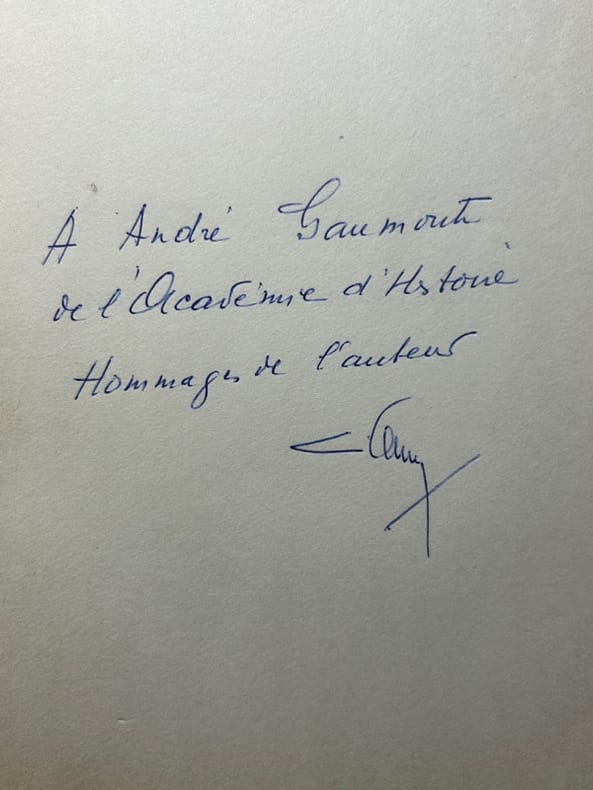 A André Gaumont
de l'Académie d'Histoire
Hommages de l'auteur